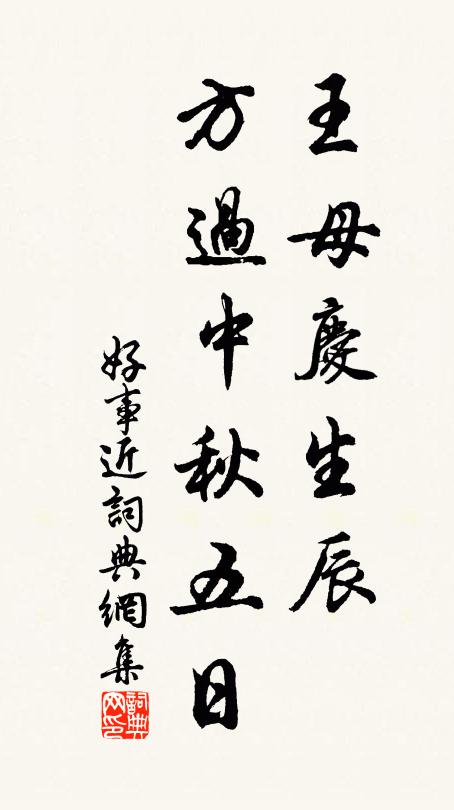 王母慶生辰
方過中秋五日
好事近詞典網集
詞典网印